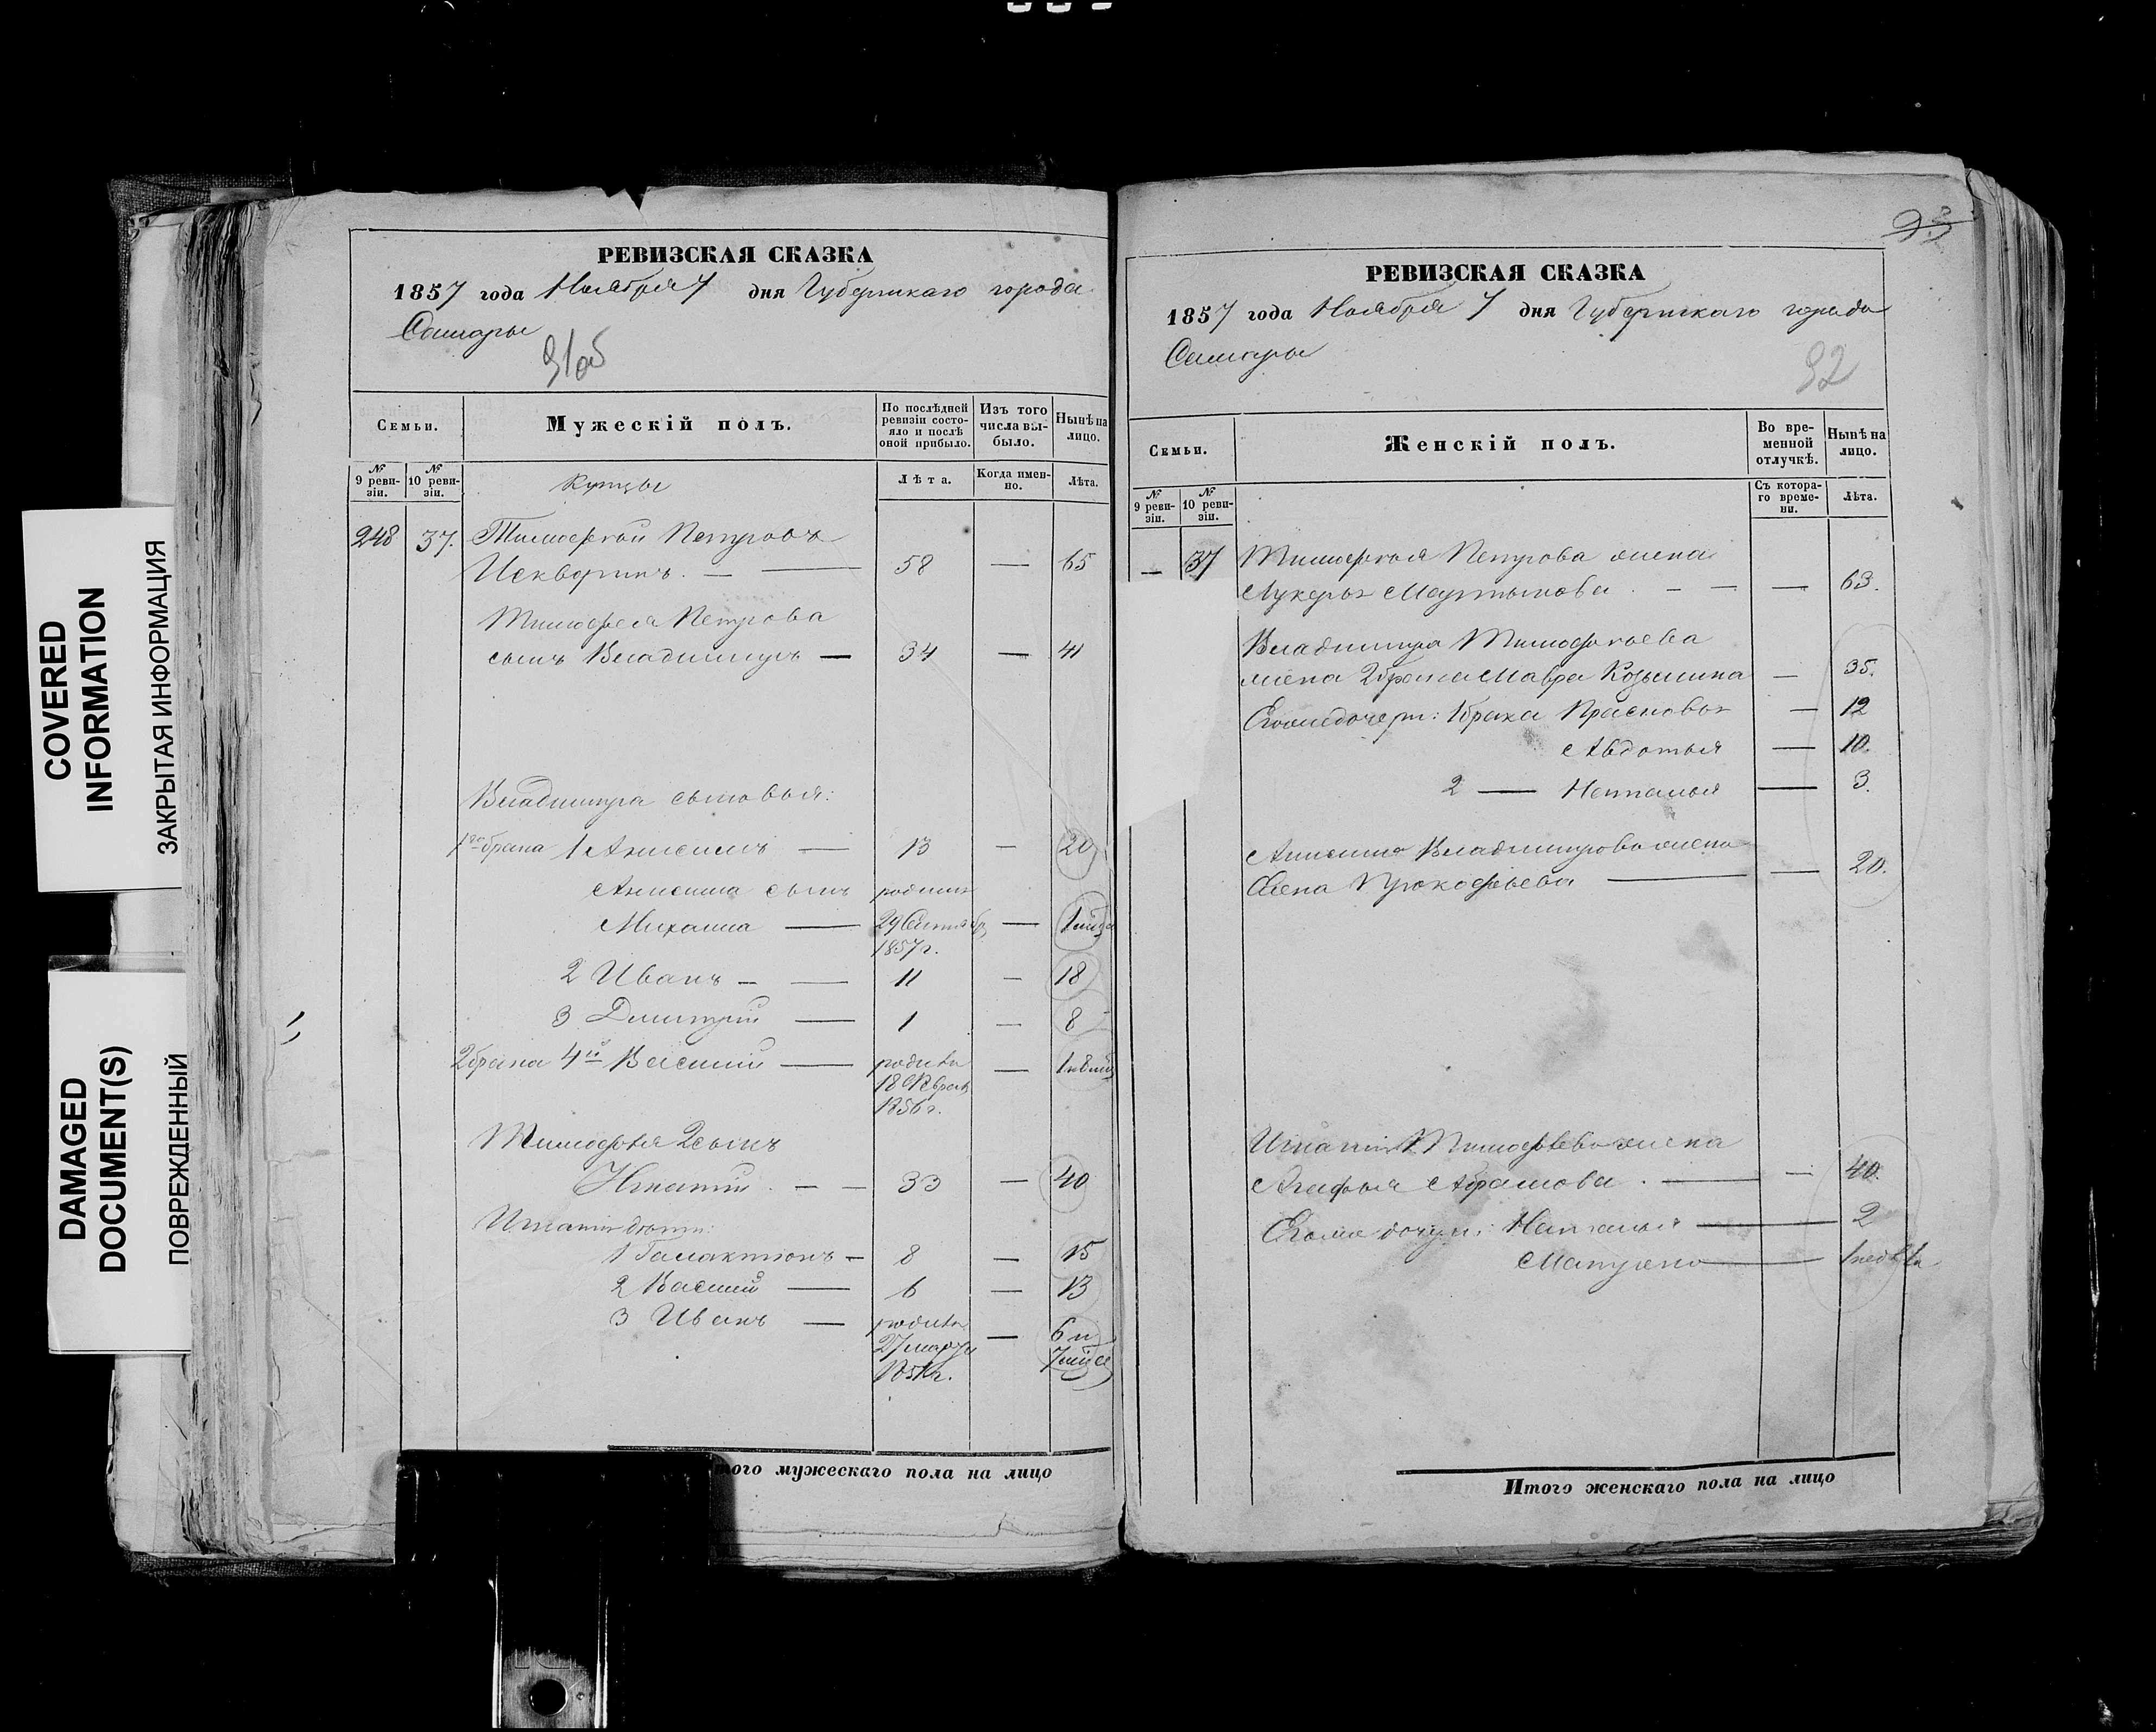 COVERED
INFORMATION
ЗАКРЫТАЯ ИНФОРМАЦИЯ
DAMAGED
DOCUMENT(S)
ПОВРЕЖДЕННЫЙ
РЕВИЗСКАЯ СКАЗКА
1857 года Ноября 7 дня Губернскаго города
Самары
91об
Семьи.
Мужескій полъ.
По послѣдней ревизіи состояло и послѣ оной прибыло.
Изъ того числа выбыло.
Нынѣ на лицо.
№ 9 ревизіи.
№ 10 ревизіи.
Купцы
Лѣта.
Когда именно.
Лѣта.
248 37. Тимофей Петровъ
58 — 65
Тимофея Петрова
сынъ Владимиръ — 34 — 41
Владимира сыновья:
1го брака 1 Анисимъ — 13 — 20
Анисима сынъ родился
Михаила — 29 Сентября — 1 мѣсяц
1857 г.
2 Иванъ — 11 — 18
3 Дмитрій — 1 — 8
2 брака 4й Василій — родился — 1
18
1856 г.
Тимофея 2 сынъ
Игнатій — 33 — 40
Игнатія дѣти:
1 Галактіонъ — 8 — 15
2 Василій — 6 — 13
3 Иванъ — родился — 6 и
27 марта 7 мѣся
1851 г.
Итого мужескаго пола на лицо
93
РЕВИЗСКАЯ СКАЗКА
1857 года Ноября 7 дня Губернскаго города
Самары
92
Семьи.
Женскій полъ.
Во временной отлучкѣ.
Нынѣ на лицо.
№ 9 ревизіи.
№ 10 ревизіи.
Съ котораго времени.
Лѣта.
— 37 Тимофея Петрова жена
Лукерья Мартынова — — 63.
Владимира Тимофеева
жена 2 брака Мавра Козьмина — 35.
Его же дочери: 1 брака Прасковья — 12
Авдотья — 10.
2 — Наталья — 3.
Анисима Владимирова жена
Елена Прокофьева — — 20.
Игнатія Тимофеева жена
Агафья Абрамова — — 40.
Его же дочери: Наталья — 2
Матрена — 1 недѣля
Итого женскаго пола на лицо